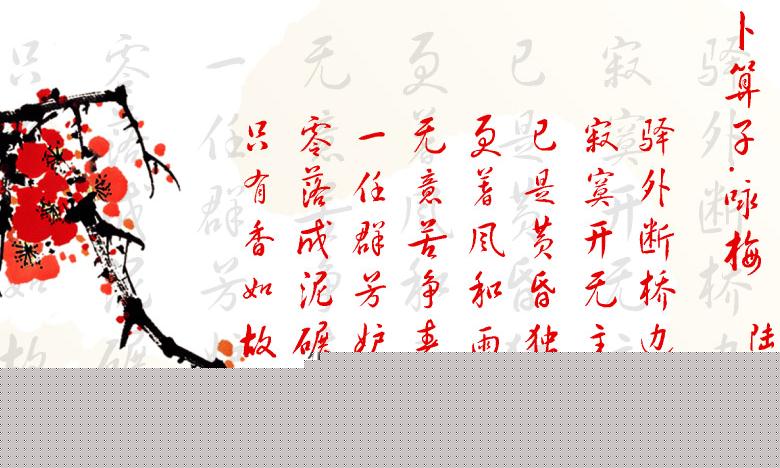 卜算子·咏梅
陆
驿外断桥边
寂寞开无主
已是黄昏独
更着风和雨
无意苦争春
一任群芳妒
零落成泥碾
只有香如故